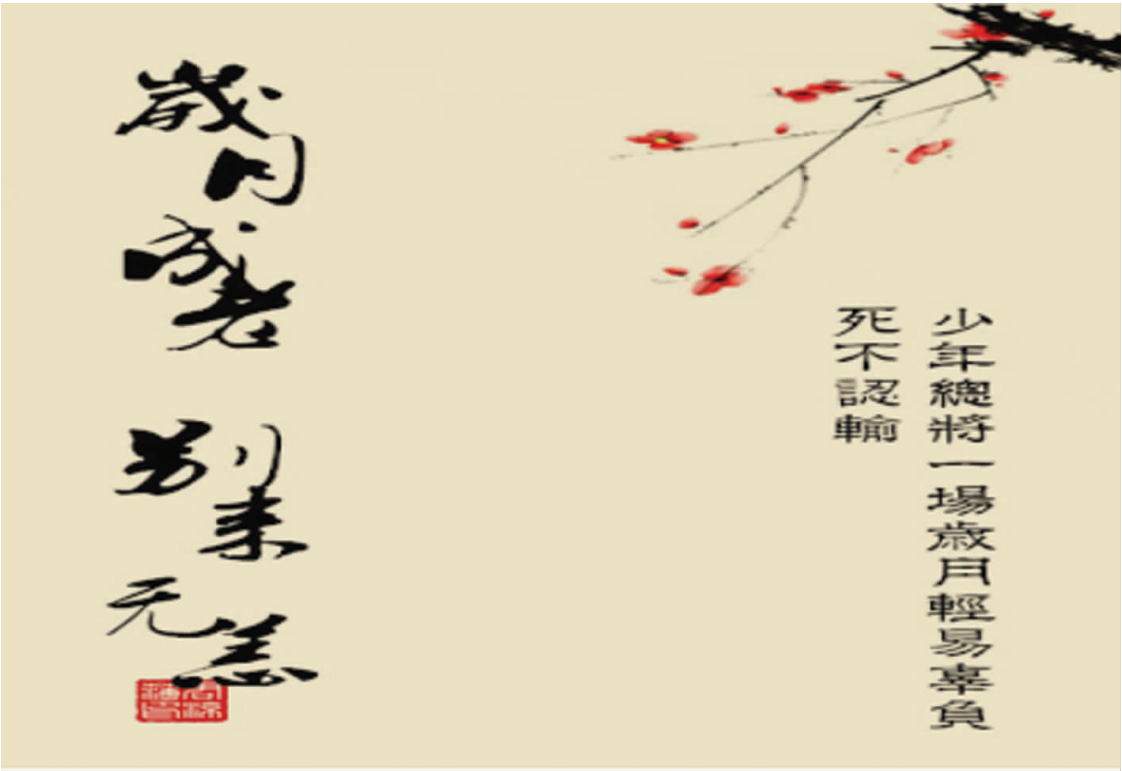 少年總將一場歲月輕易辜負
死不認輸
歲月成老
别来无恙